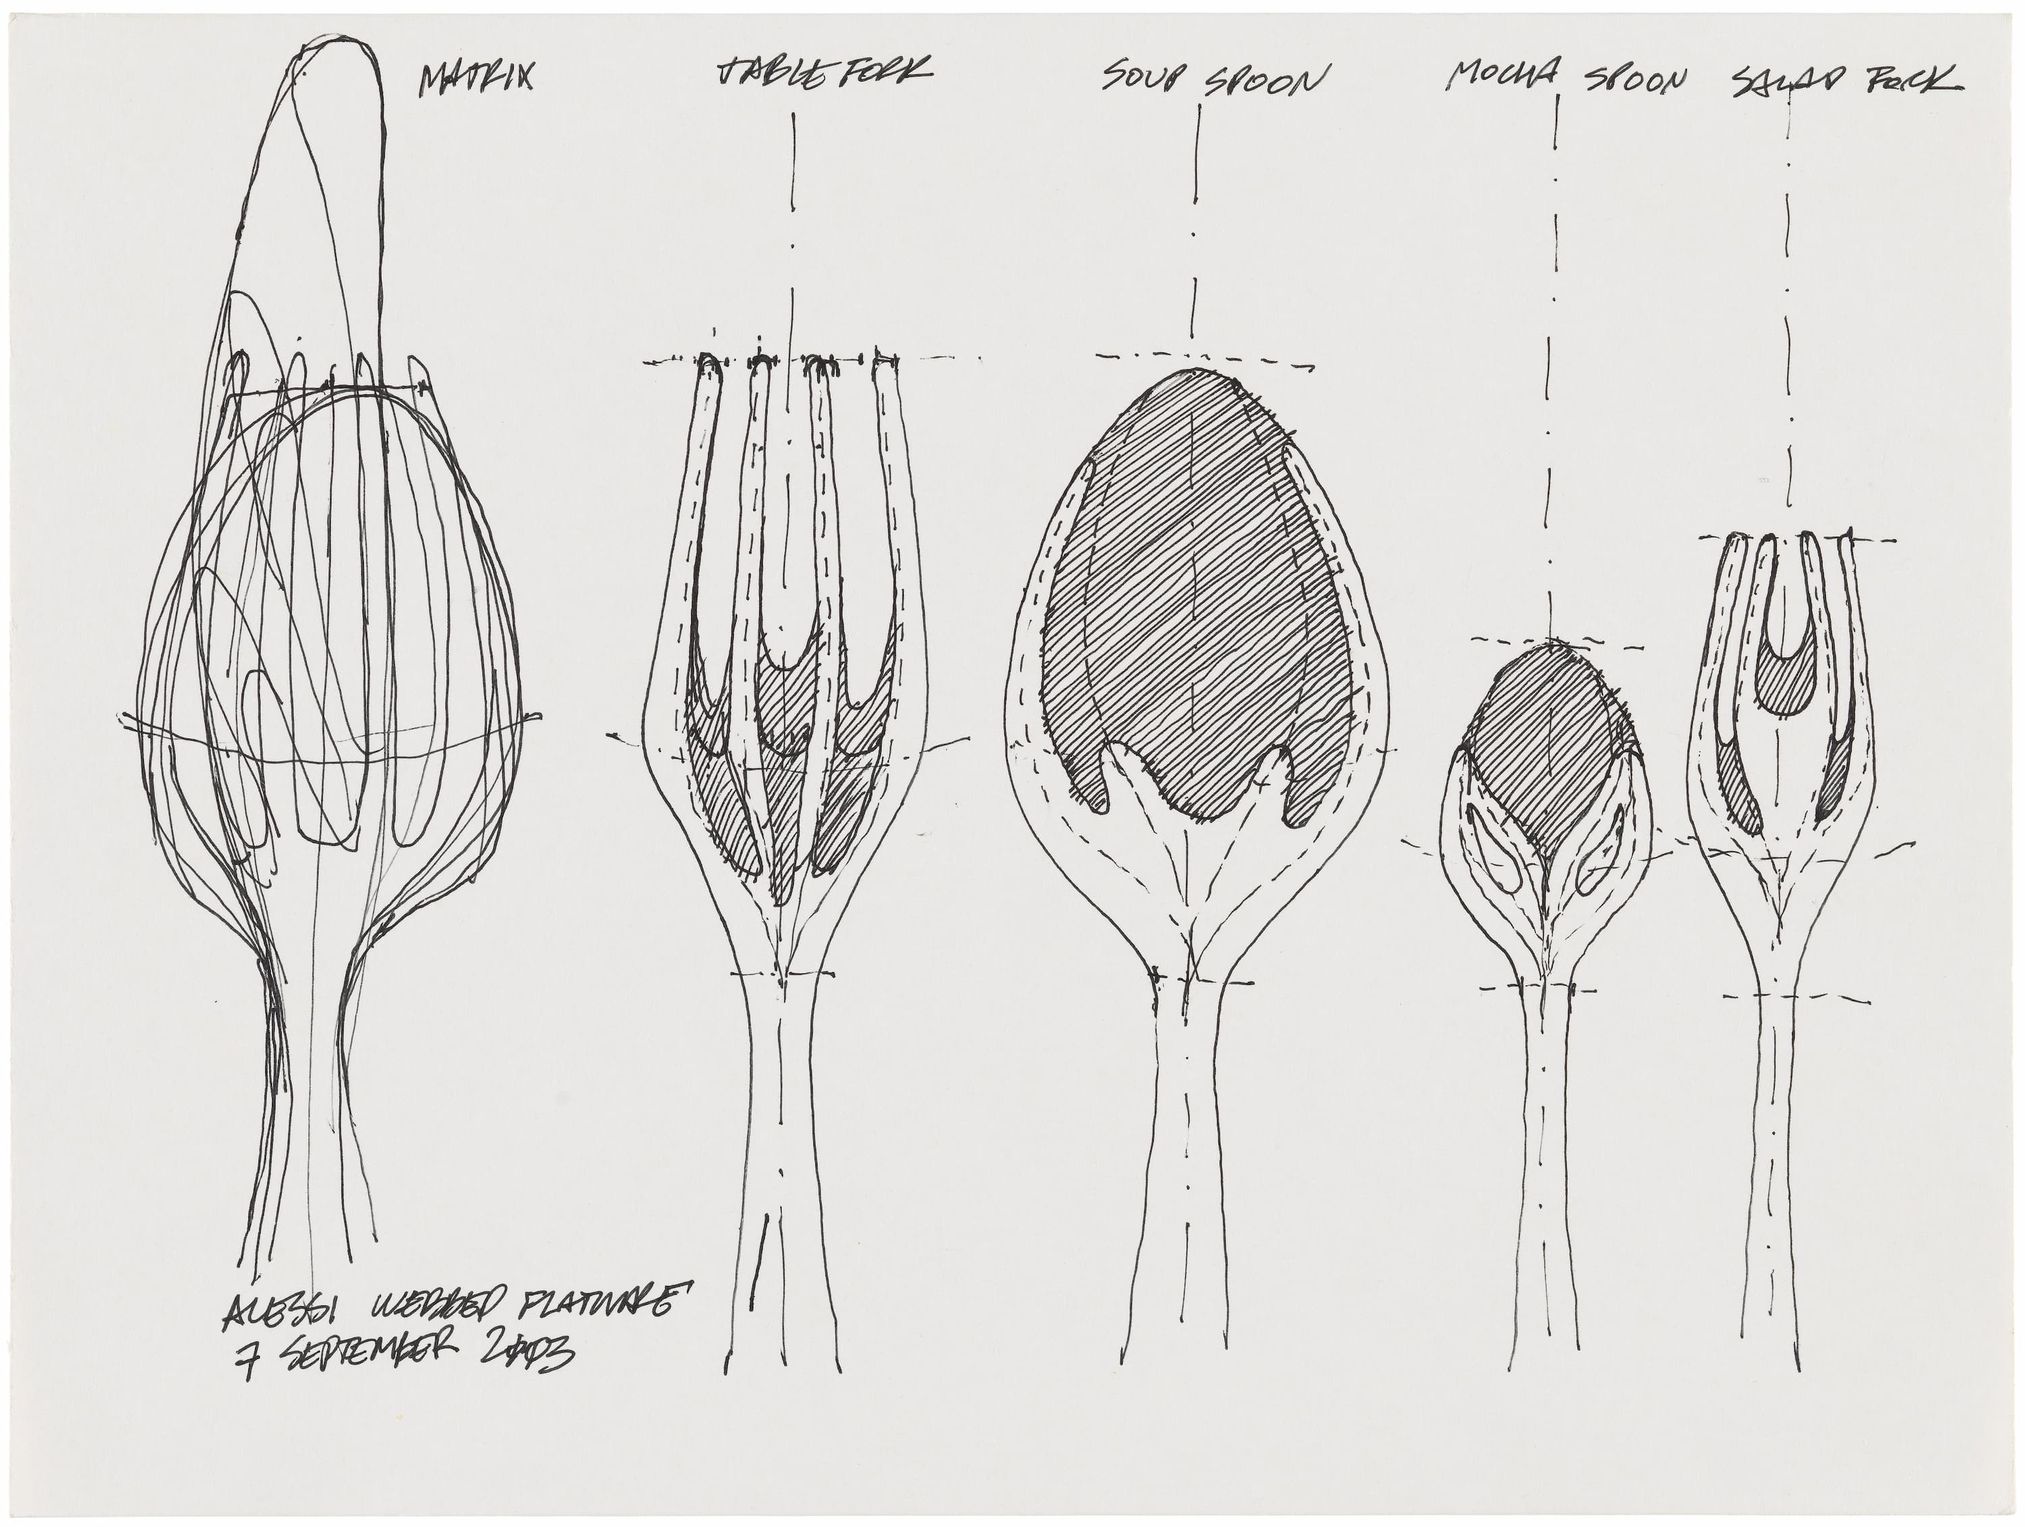 MATRIX
TABLE FORK
SOUP SPOON
MOCHA SPOON
SALAD FORK
ALESSI WEBBED FLATWARE
7 SEPTEMBER 2003